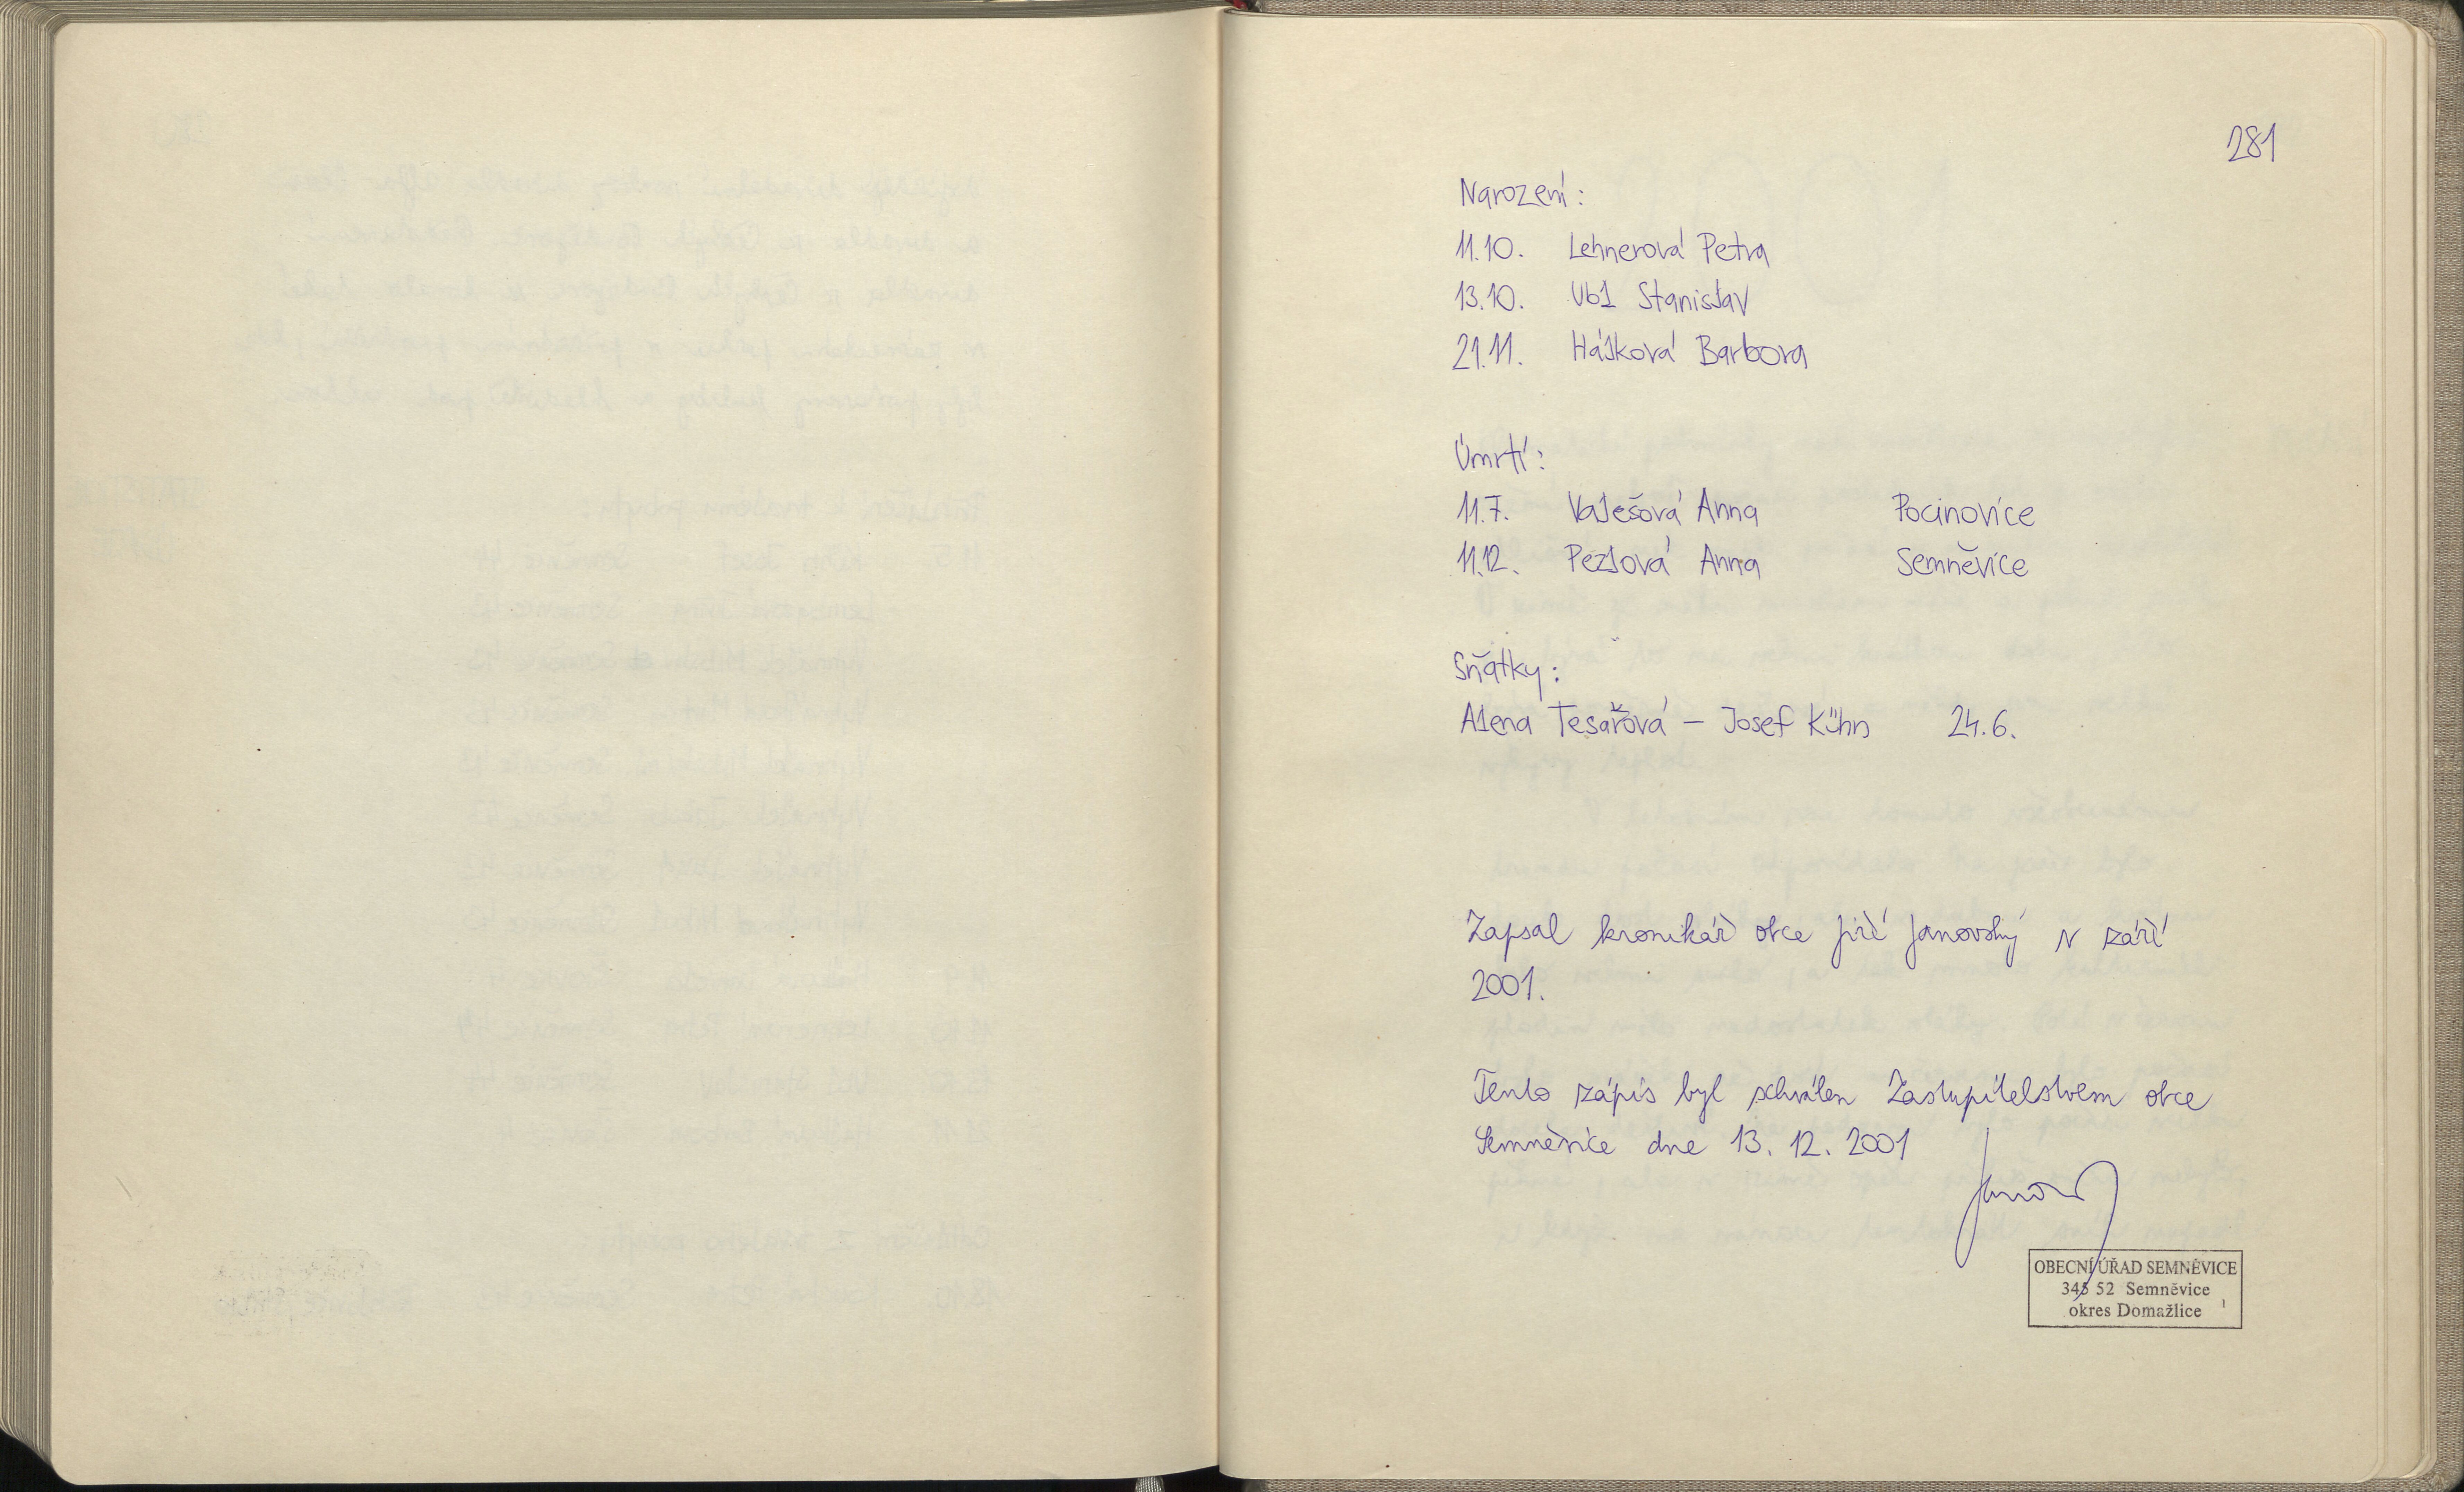 281
Narození:
11.10. Lehnerová Petra
13.10. Vbl Stanislav
21.11. Hálková Barbora
Úmrtí:
11.7. Valešová Anna Pocinovice
11.12. Pezlová Anna Semněvice
Sňatky:
Alena Tesařová – Josef Kühn 24.6.
Zapsal kronikář obce Jiří Janovský v září
2001.
Tento zápis byl schválen Zastupitelstvem obce
Semněvice dne 13. 12. 2001
OBECNÍ ÚŘAD SEMNĚVICE
345 52 Semněvice
okres Domažlice